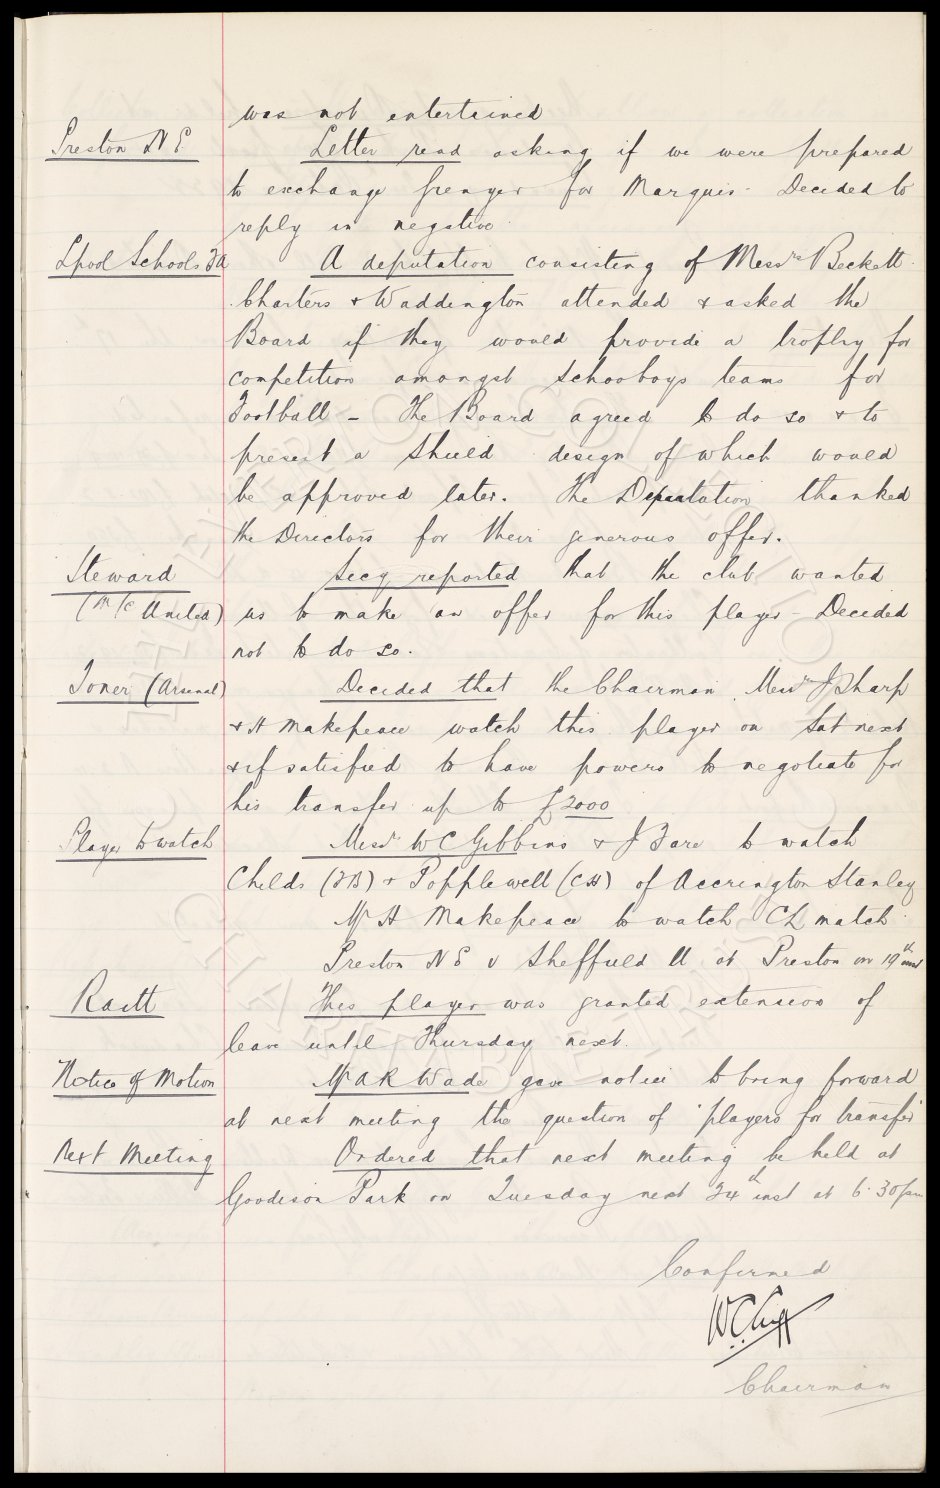 was not entertained
Preston N E
Letter read asking if we were prepared
to exchange for Marquis. Decided to
reply in negative
Lpool Schools FA
A deputation consisting of Messrs Beckett
Charters & Waddington attended & asked the
Board if they would provide a trophy for
competition amongst schooboys teams for
Football - The Board agreed to do so & to
present a Shield design of which would
be approved later. The Deputation thanked
the Directors for their generous offer.
Steward
(M/c United)
Secy reported that the club wanted
us to make an offer for this player - Decided
not to do so.
Toner (Arsenal)
Decided that the Chairman Messrs J Sharp
& H Makepeace watch this player on Sat next
& if satisfied to have powers to negotiate for
his transfer up to £2000
Player to watch
Messrs W C Gibbins & J Fare to watch
Childs (FB) & Popplewell (CH) of Accrington Stanley
Mr H Makepeace to watch CL match
Preston N E v Sheffield U at Preston on 19th inst
Raitt
This player was granted extension of
leave until Thursday next.
Notice of Motion
Mr A R Wade gave notice to bring forward
at next meeting the question of 'players for transfer'
Next Meeting
Ordered that next meeting be held at
Goodison Park on Tuesday next 24th inst at 6.30pm
Confirmed
W.C. Cuff
Chairman